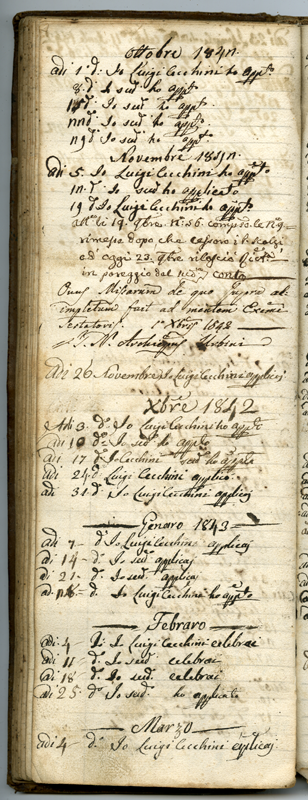 Ottobre 1842.
adi 1. dº Io Luigi Cecchini ho appto
8. dº Io sudº ho appto
15 dº Io sudº ho appto
22 dº Io sudº ho appto
29 dº Io sudº ho appto
Novembre 1842.
adi 5. Io Luigi Cecchini ho appto
12. dº Io sudº ho applicato
19 dº Io Luigi Cecchini ho appto
li 19. 9bre Nº 56. comprso le
rimesse dopo che
ed oggi 23. 9bre rilascia
in pareggio del conto
Onus Missarum de quo supra ad
impletum fuit ad mentem
Testatoris. 1ª Xbris 1842
Urbini
Adi 26 Novembre Io Luigi Cecchini applicaj
Xbre 1842
Adi 3. dº Io Luigi Cecchini ho appto
adi 10 dº Io sudº ho appto
adi 17 dº Io Cecchini sudº ho appto
adi 24 dº Luigi Cecchini applico
adi 31 dº Io Luigi Cecchini applicaj
Genaro 1843
adi 7 - dº Io Luigi Cecchini applicaj
adi 14 - dº Io sudº applicaj
di 21 - dº Io sudº applica
adi 28 - dº Io Luigi Cecchini ho appto
Febraro
adi 4 - Io Luigi Cecchini celebrai
adi 11 - dº Io sudº celebrai
adi 18 dº Io sudº celebrai
adi 25 dº Io sudº ho applicato
Marzo
adi 4 - dº Io Luigi Cecchini applicaj